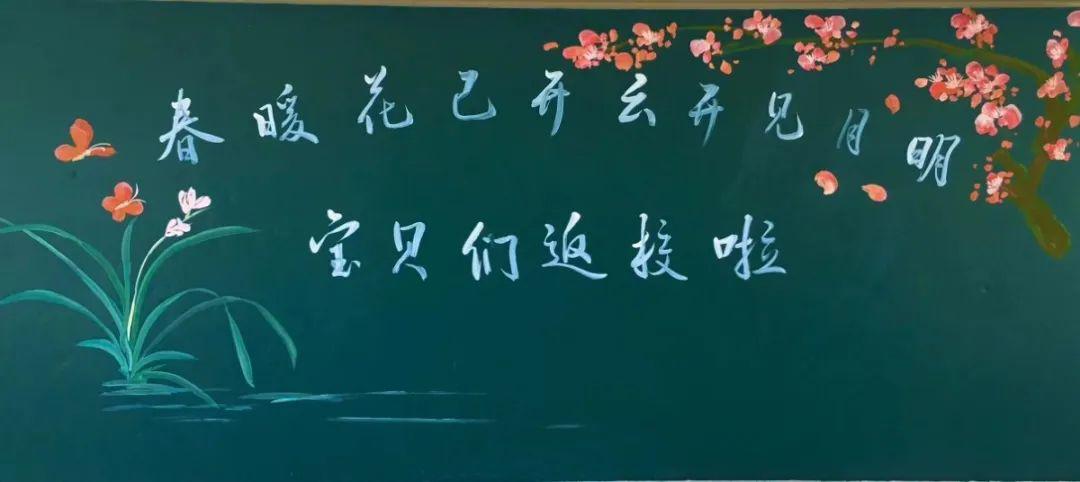 春暖花已开云开见月明
宝贝们返校啦